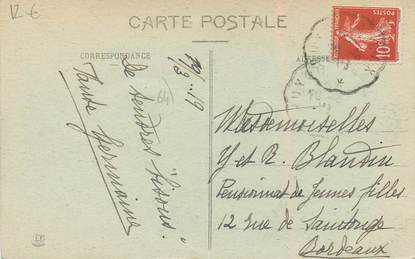 12 €
CARTE POSTALE
CORRESPONDANCE
ADRESSE
POSTES
10c
64
De tendres bisous.
Tante Germaine
Mesdemoiselles
Y et R. Blandin
Pensionnat de Jeunes filles
12 rue de Saintonge
Bordeaux